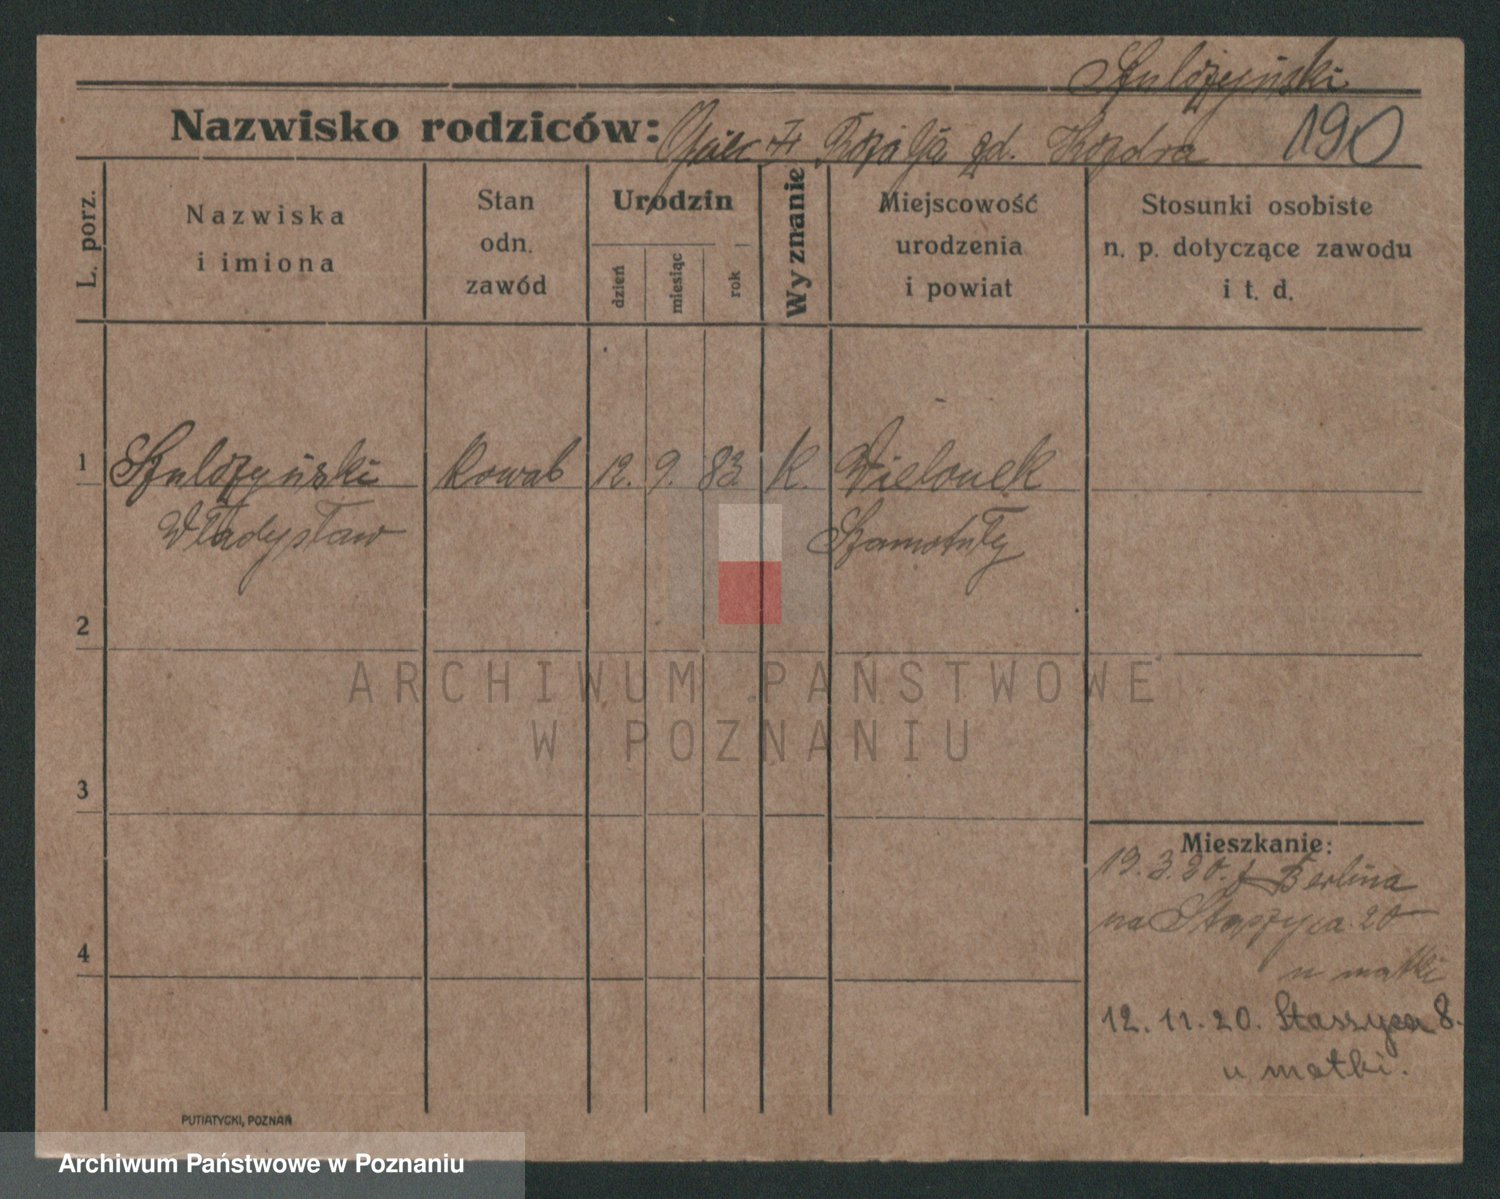 Szulczyński
Nazwisko rodziców: Rozalja zd. Kozdra 190
L. porz.
Nazwiska i imiona
Stan odn. zawód
Urodzin
dzień miesiąc rok
Wyznanie
Miejscowość urodzenia i powiat
Stosunki osobiste n. p. dotyczące zawodu i t. d.
1 Szulczyński kowal 12. 9. 83 K. Wielonek
Władysław Szamotuły
2
3
4
Mieszkanie:
19.3.20. z Berlina
na Staszyca 20
u matki
12.11.20. Staszyca 8.
u matki.
PUTIATYCKI, POZNAŃ
ARCHIWUM PAŃSTWOWE
W POZNANIU
Archiwum Państwowe w Poznaniu